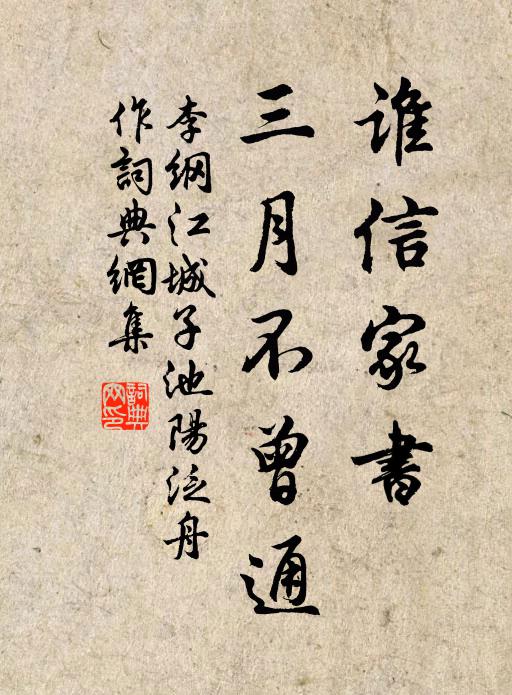 誰信家書
三月不曾通
李綱江城子池陽泛舟
作詞典網集
詞典網印